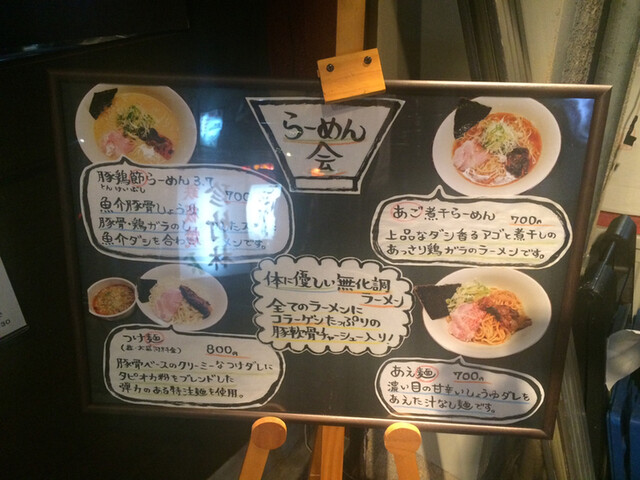 らーめん
会
豚鶏節らーめん 3.7
とんけいぶし
700円
魚介豚骨しょうゆ
豚骨・鶏ガラの
魚介ダシを合わせ
メンです。
あご煮干らーめん 700円
上品なダシ香るアゴと煮干しの
あっさり鶏ガラのラーメンです。
体に優しい無化調
ラーメン
全てのラーメンに
コラーゲンたっぷりの
豚軟骨チャーシュー入り!
つけ麺
800円
豚骨ベースのクリーミーなつけダレに
タピオカ粉をブレンドした
弾力のある特注麺を使用。
あえ麺 700円
濃い目の甘辛いしょうゆダレを
あえた汁なし麺です。